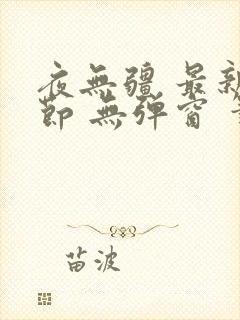 夜無疆 最新
節 無彈窗
苗波